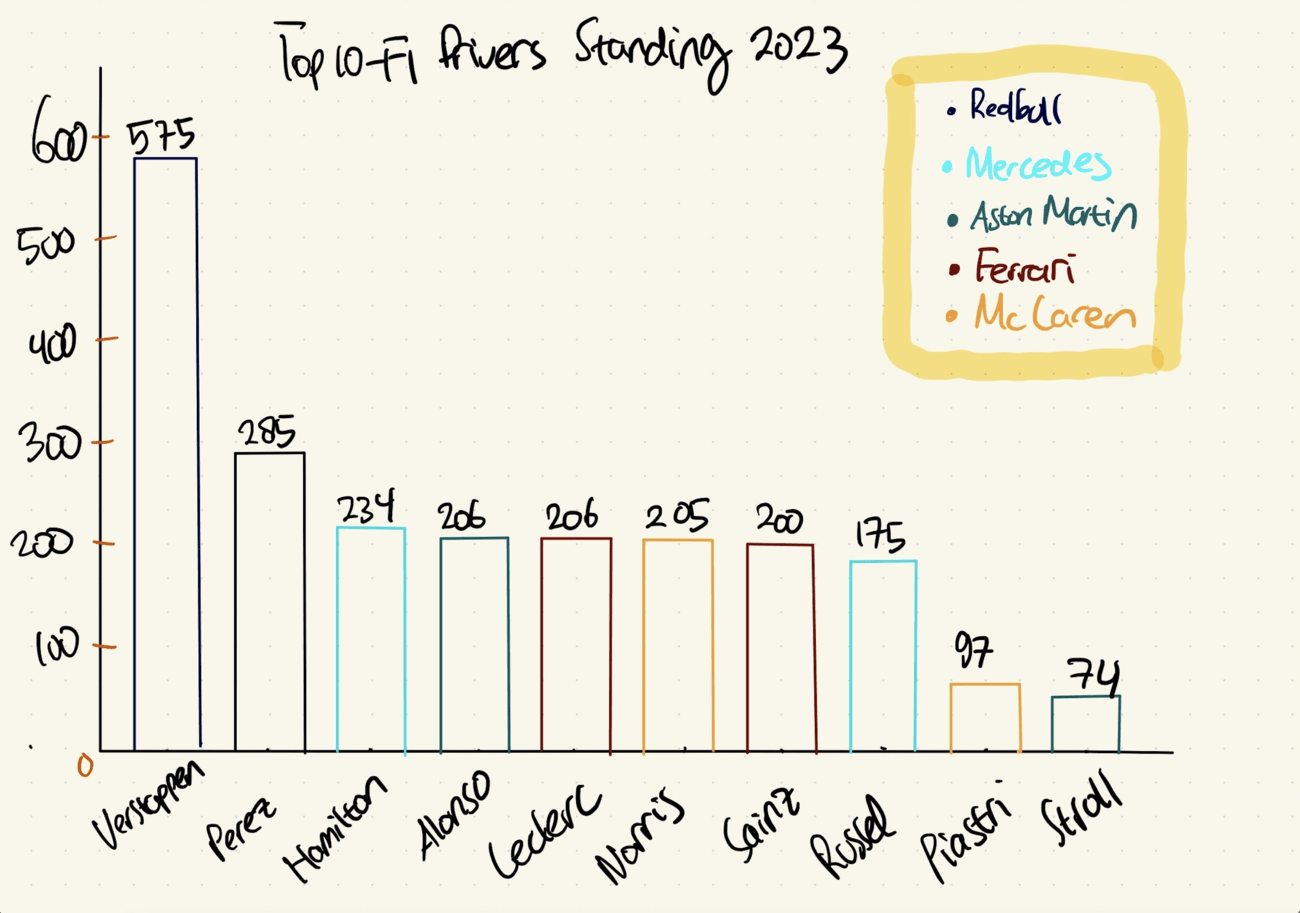 Top 10 F1 Drivers Standing 2023
• Redbull
• Mercedes
• Aston Martin
• Ferrari
• McLaren
600
500
400
300
200
100
0
575
285
234
206
206
205
200
175
97
74
Verstappen
Perez
Hamilton
Alonso
Leclerc
Norris
Sainz
Russel
Piastri
Stroll